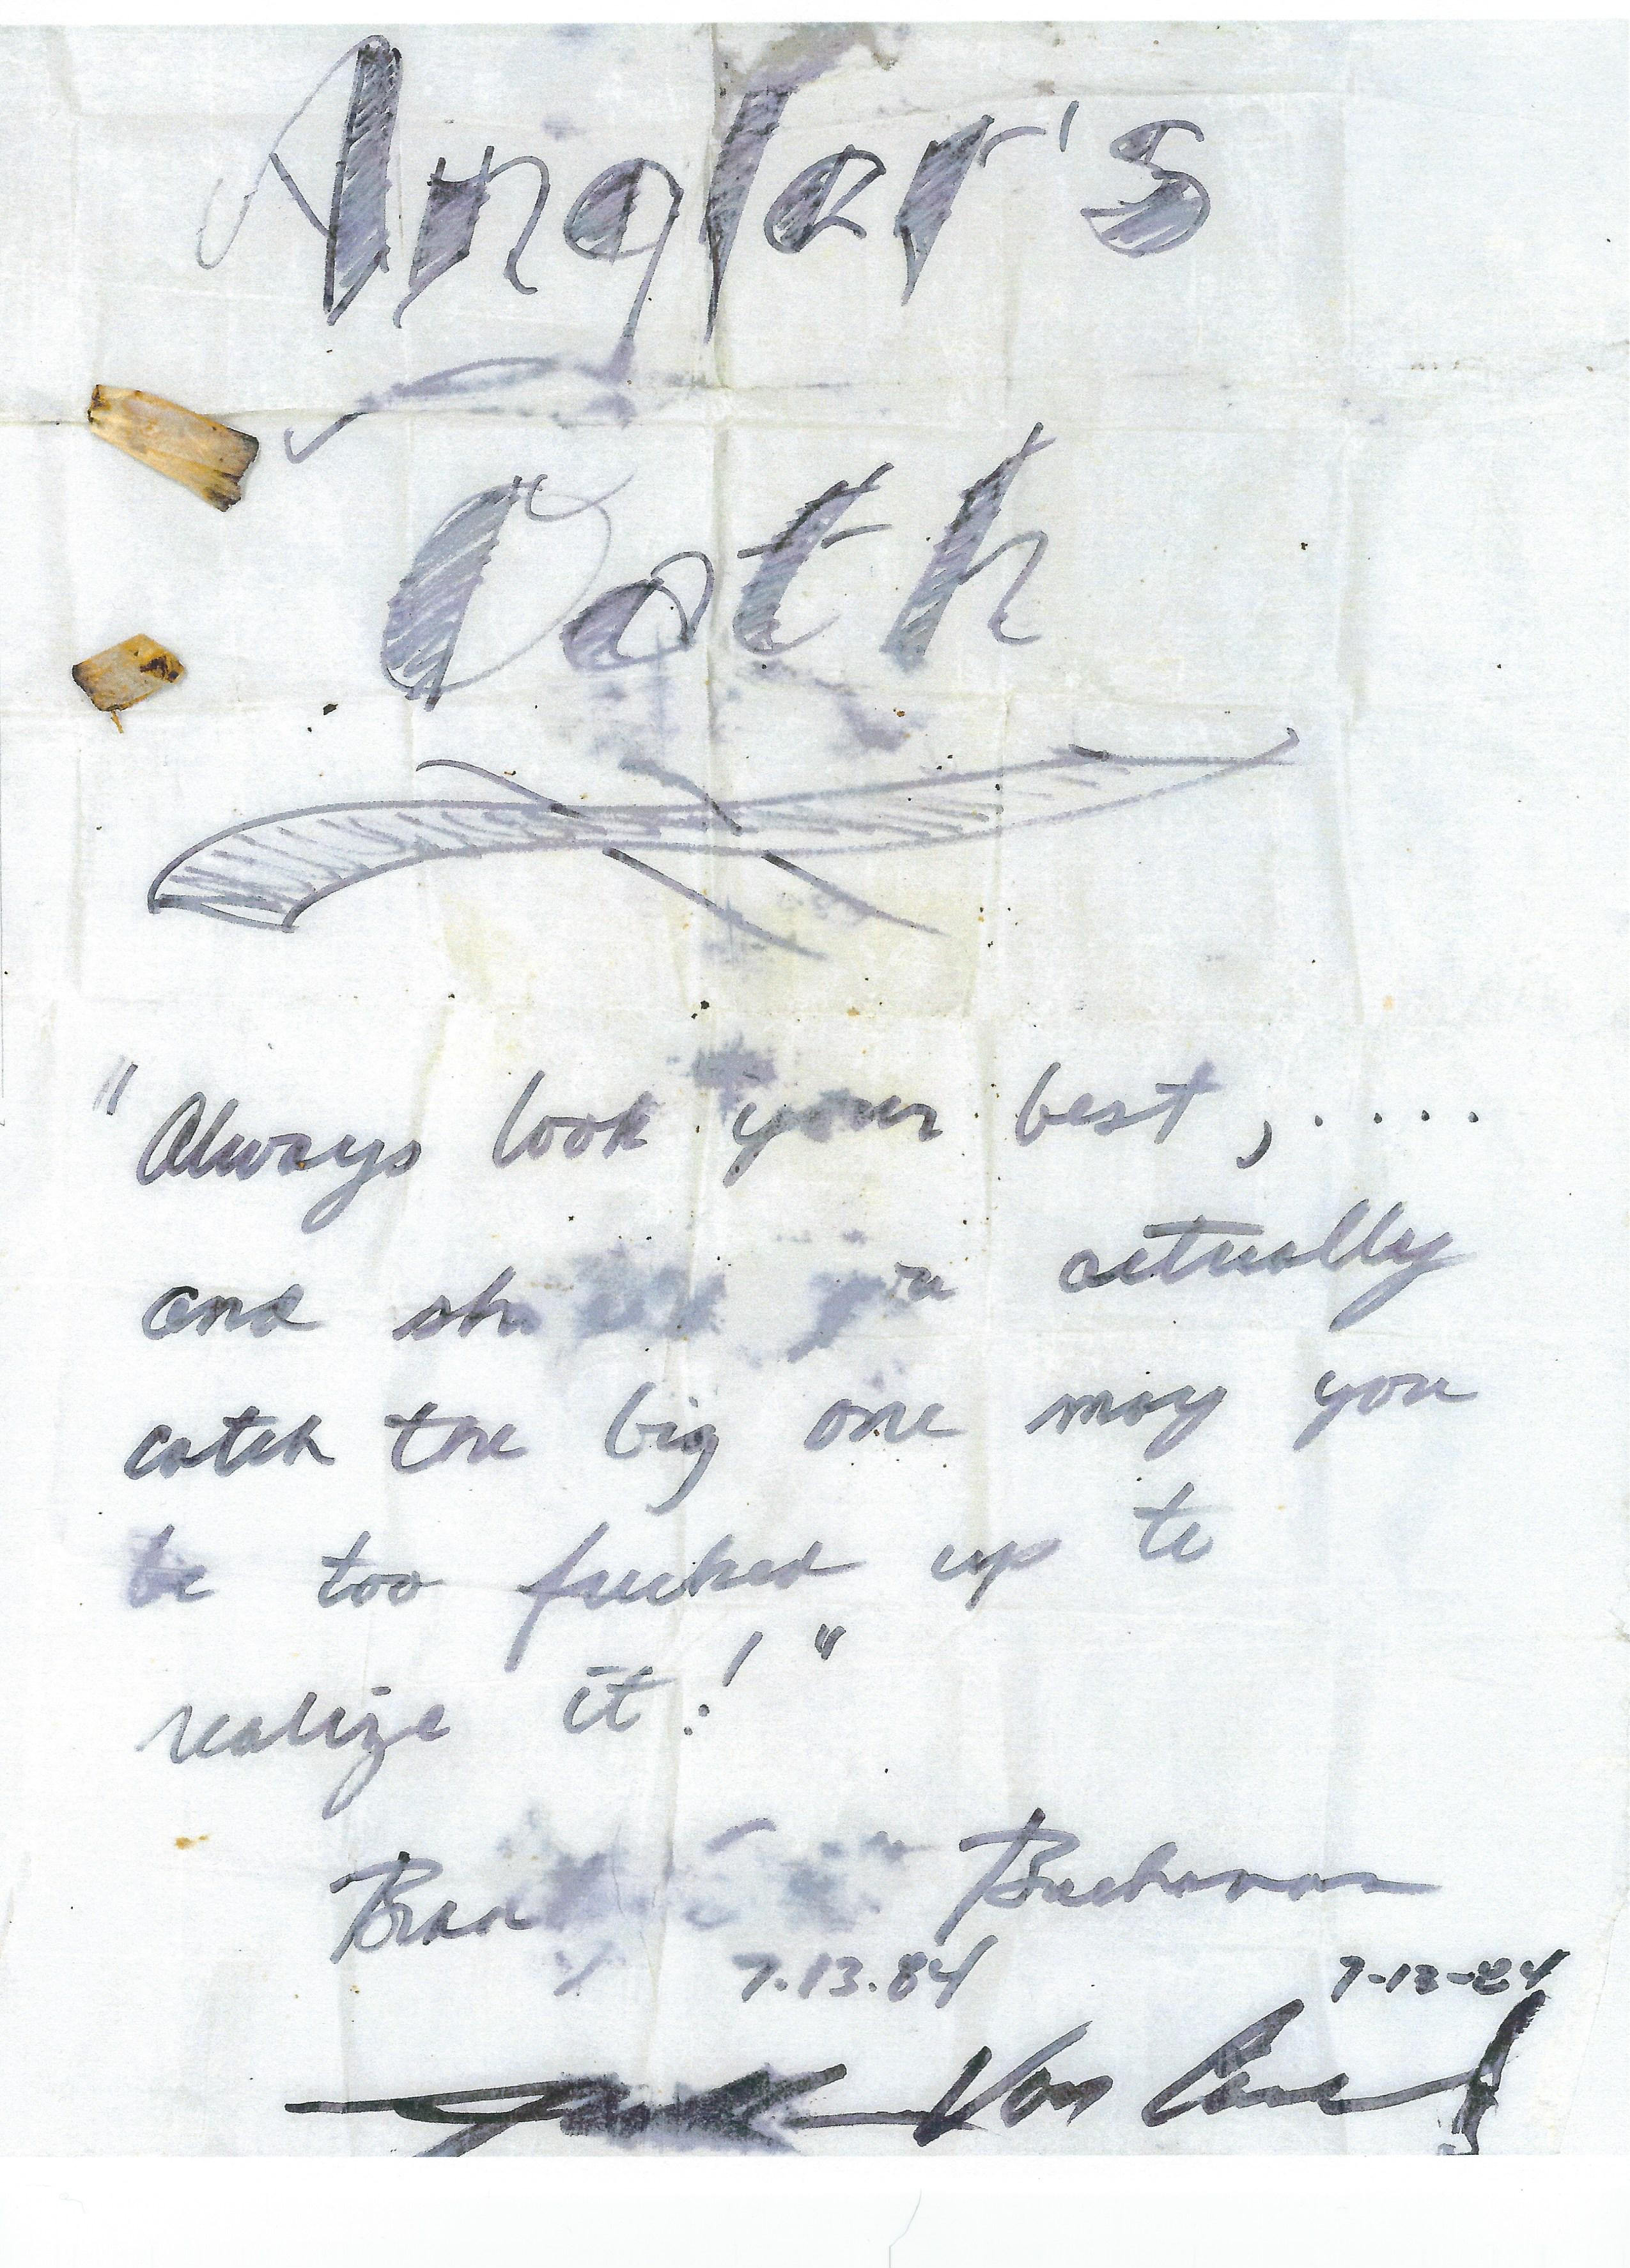 Angler's
Oath
"Always look your best, .....
and actually
catch the big one may you
be too fucked up to
realize it!"
Buchanan
7.13.84 7-13-84
Von